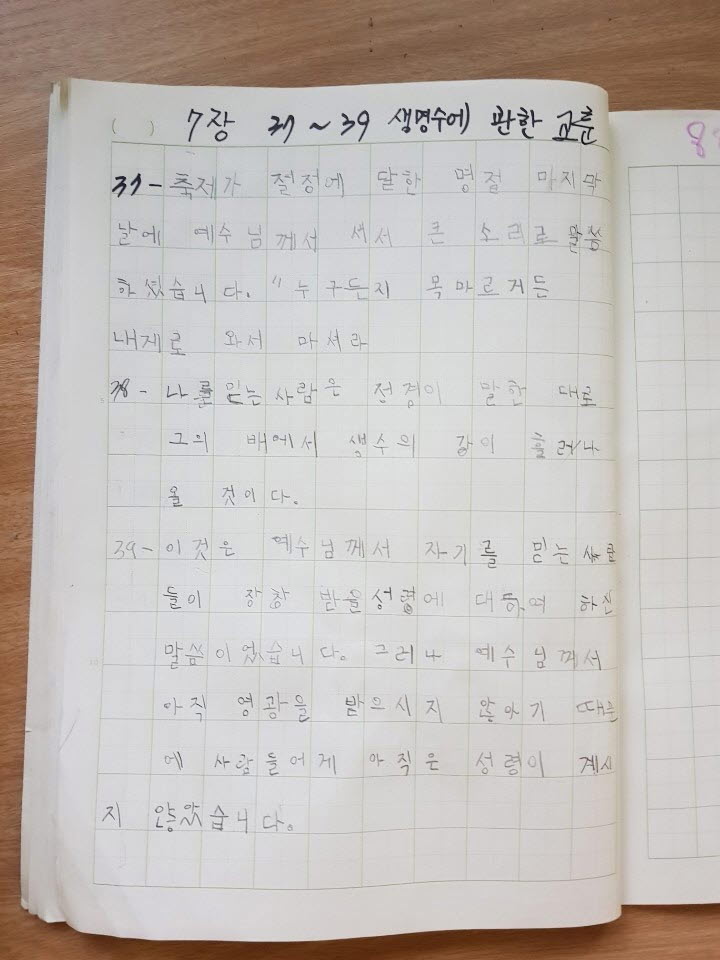 ( ) 7장 37~39 생명수에 관한 교훈
8
37- 축제가 절정에 달한 명절 마지막
날에 예수님께서 서서 큰 소리로 말씀
하셨습니다. "누구든지 목마르거든
내게로 와서 마셔라
38- 나를 믿는 사람은 성경이 말한 대로
그의 배에서 생수의 강이 흘러나
올 것이다.
39- 이것은 예수님께서 자기를 믿는 사람
들이 장차 받을 성령에 대하여 하신
말씀이었습니다. 그러나 예수님께서
아직 영광을 받으시지 않아기 때문
에 사람들에게 아직은 성령이 계시
지 않았습니다.